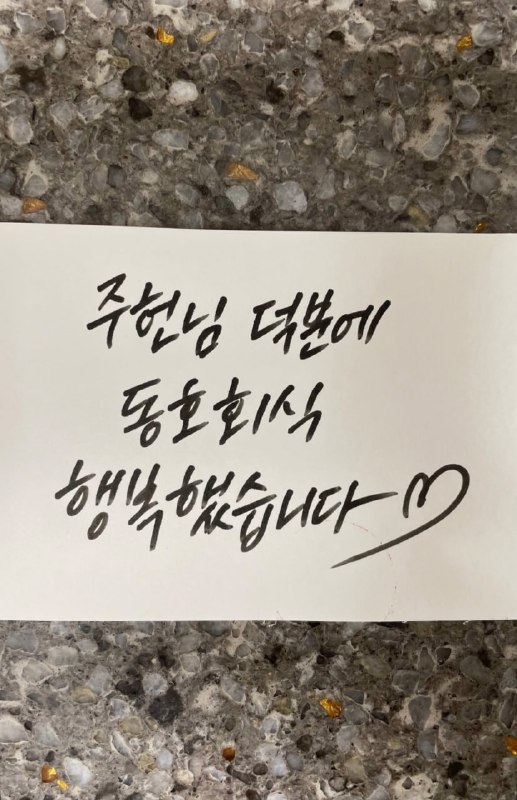 주헌님 덕분에
동호회식
행복했습니다